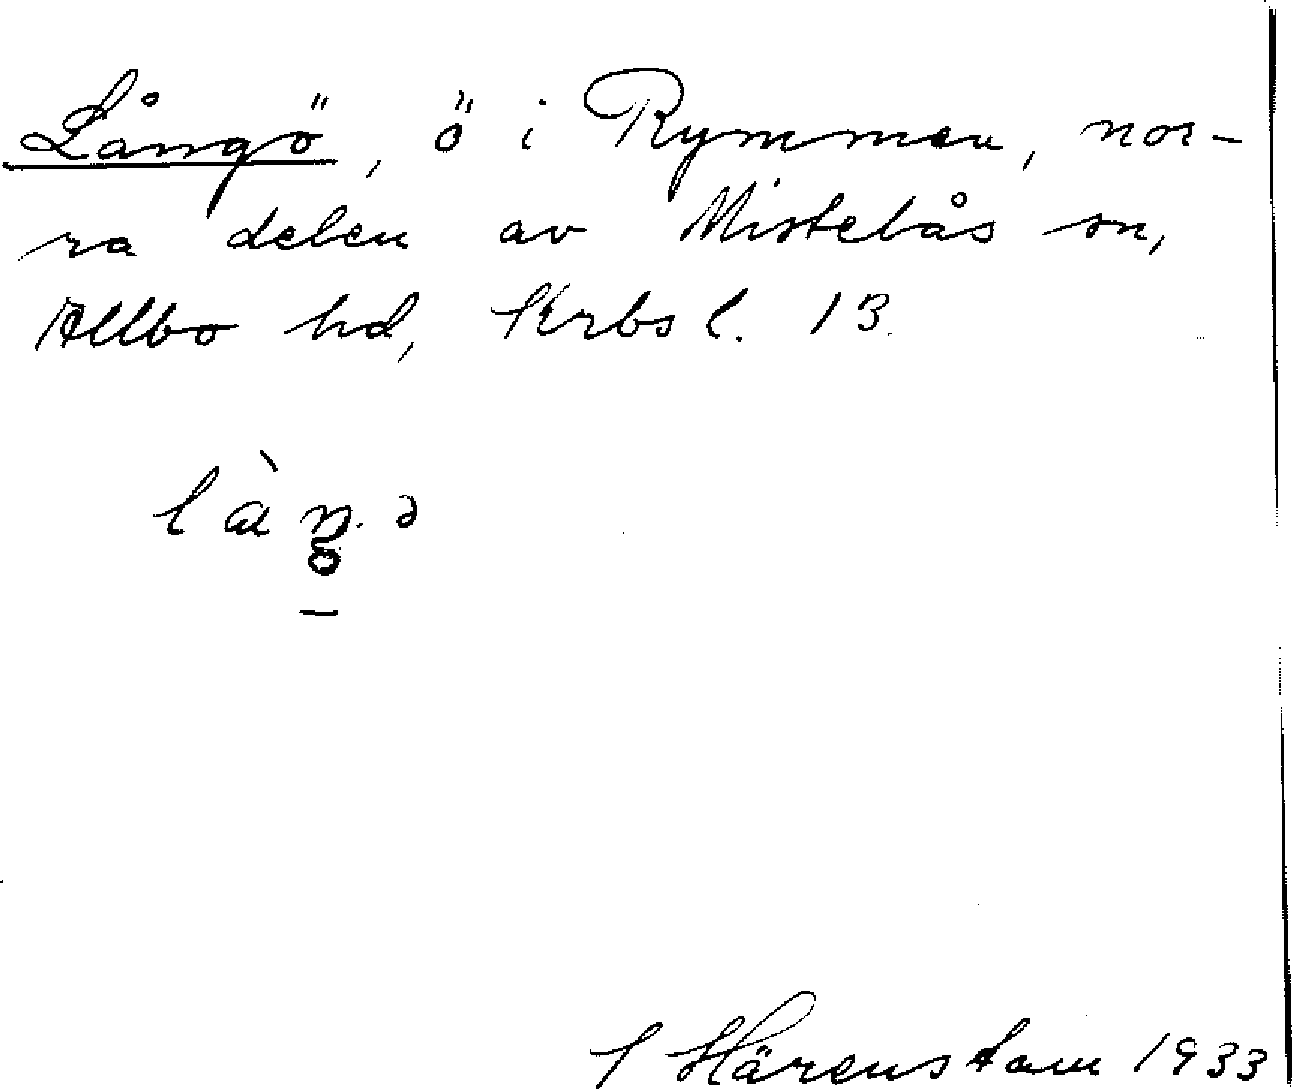 Långö, ö i Rymmen, nor-
ra delen av Mistelås sn,
Allbo hd, Krbs l. 13.
J Härenstam 1933